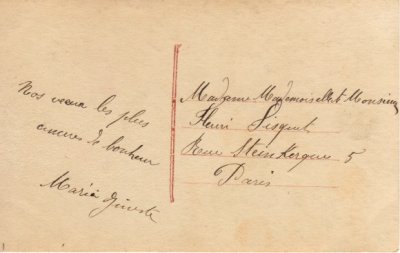 Nos vœux les plus
de bonheur
Maria
Madame Mademoiselle et Monsieur
Henri
Rue Steinkerque 5
Paris